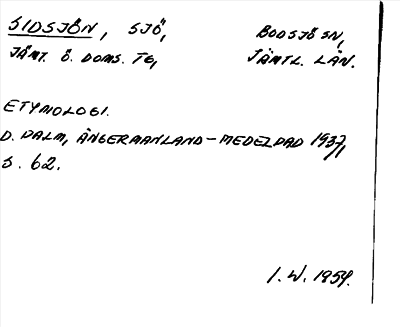 SIDSJÖN, SJÖ, BODSJÖ SN,
JÄMT. Ö. DOMS. TG, JÄMTL. LÄN.
ETYMOLOGI.
D. PALM, ÅNGERMANLAND-MEDELPAD 1937,
S. 62.
I. W. 1959.